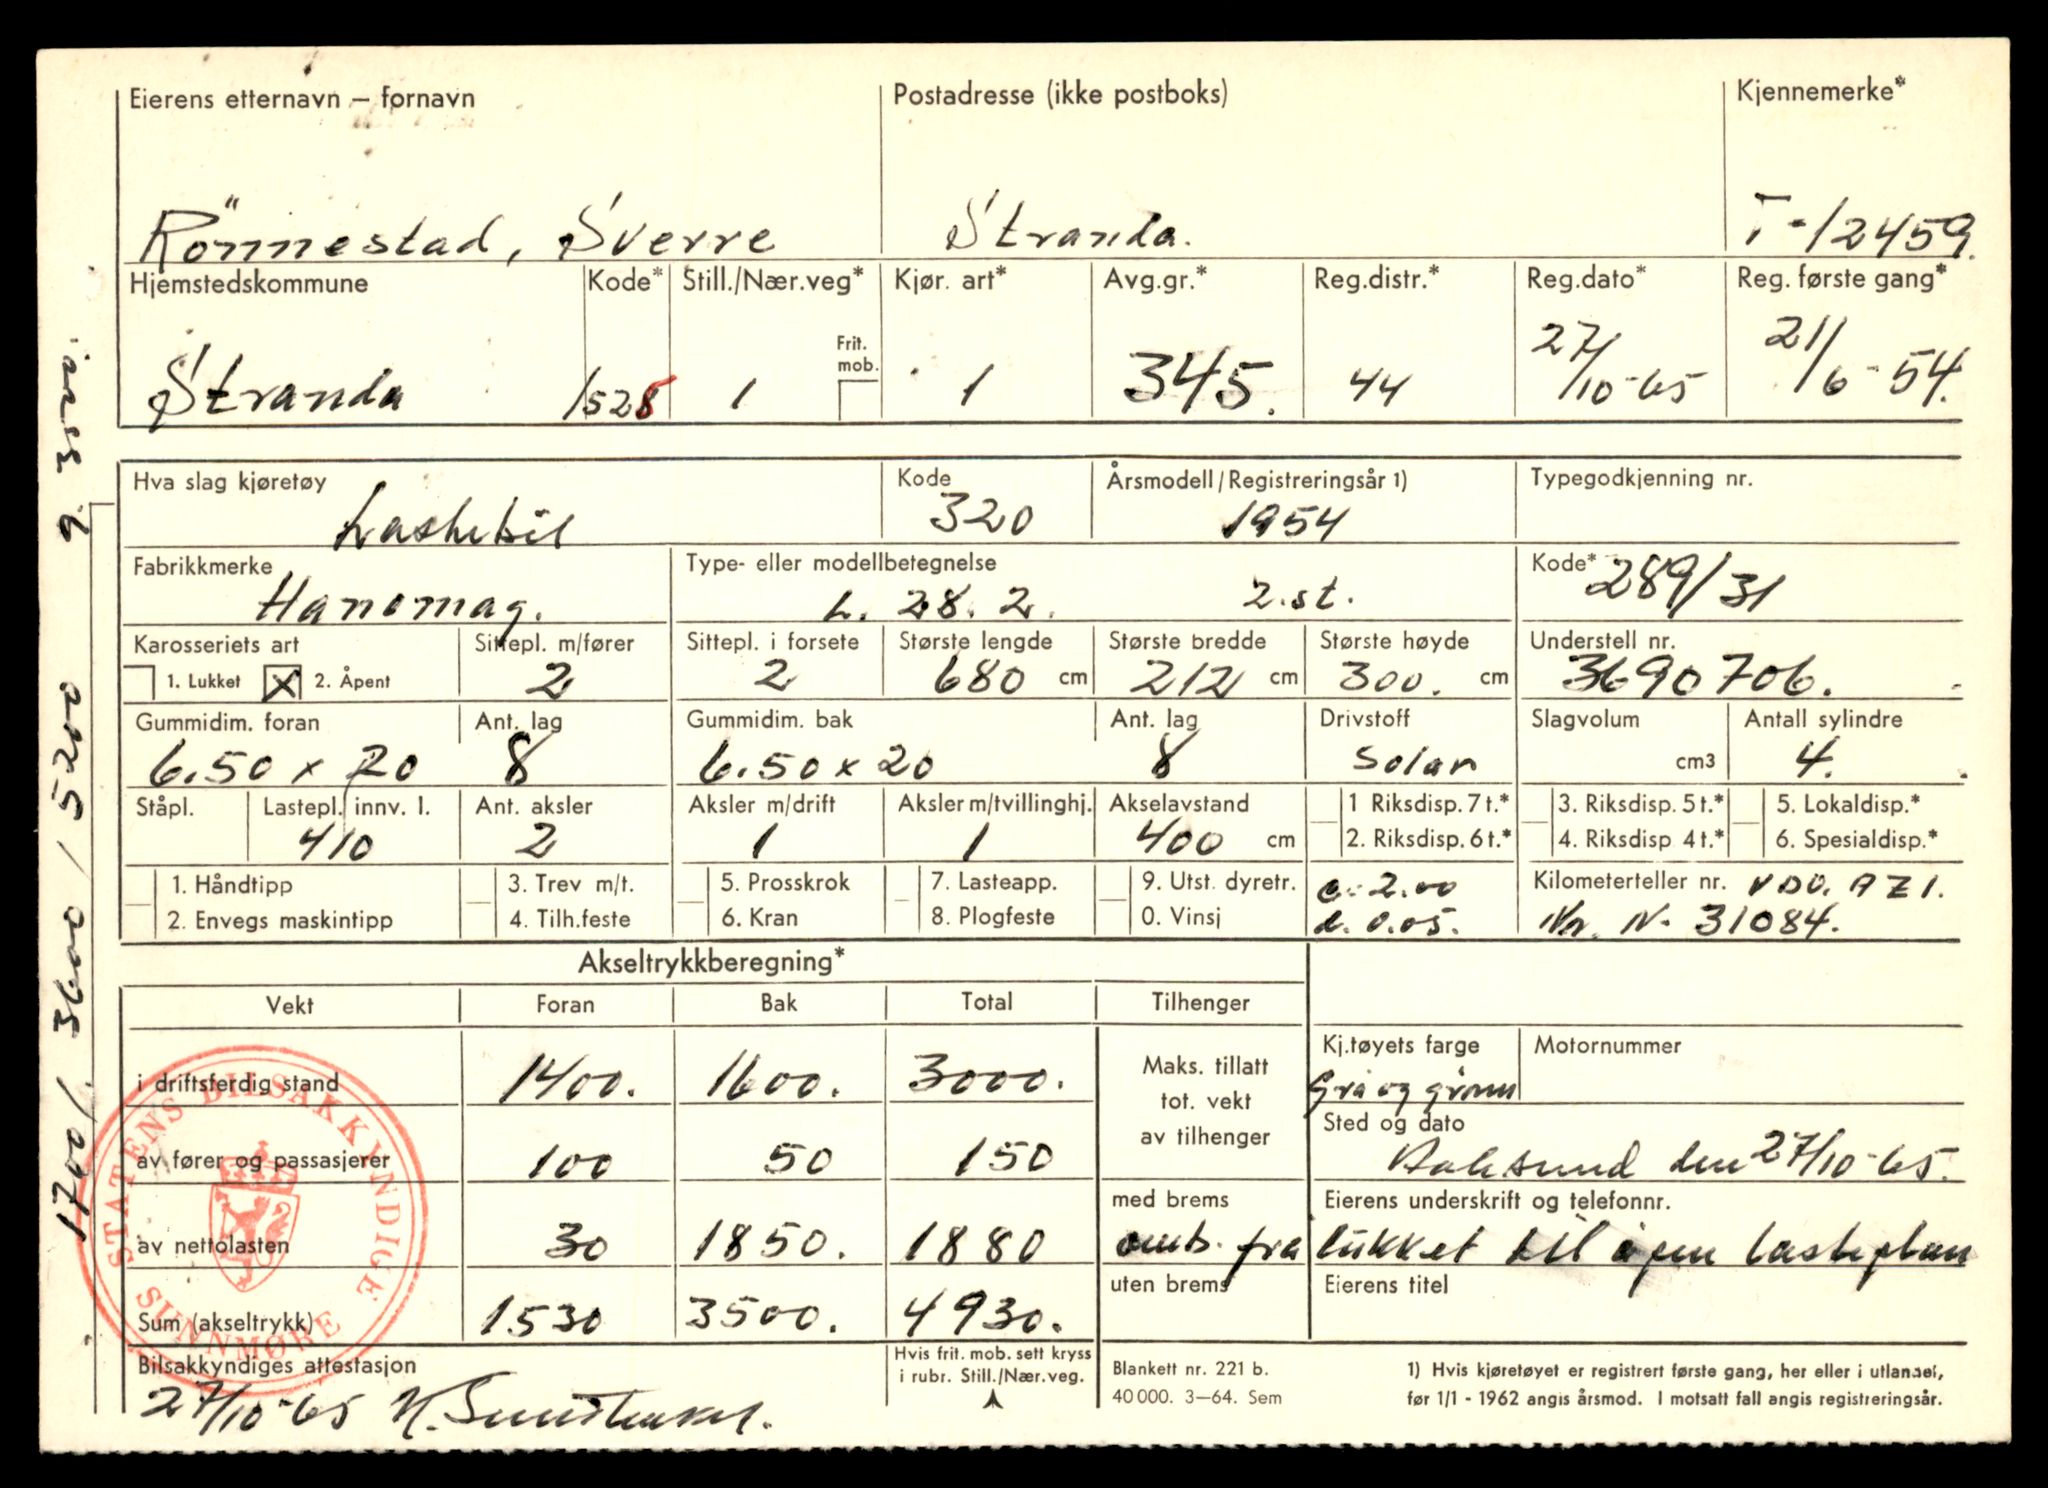 Eierens etternavn – fornavn Postadresse (ikke postboks) Kjennemerke*
Rönnestad, Sverre Stranda. T-12459.
Hjemstedskommune Kode* Still./Nær.veg* Kjør. art* Avg.gr.* Reg.distr.* Reg.dato* Reg. første gang*
Frit. mob.
Stranda 1528 1 1 345. 44 27/10-65 21/6-54.
Hva slag kjøretøy Kode Årsmodell/Registreringsår 1) Typegodkjenning nr.
Lastebil 320 1954
Fabrikkmerke Type- eller modellbetegnelse Kode*
Hanomag. L. 28. 2. 2.st. 289/31
Karosseriets art Sittepl. m/fører Sittepl. i forsete Største lengde Største bredde Største høyde Understell nr.
1. Lukket X 2. Åpent 2 2 680 cm 212 cm 300. cm 3690706.
Gummidim. foran Ant. lag Gummidim. bak Ant. lag Drivstoff Slagvolum Antall sylindre
6.50 x 20 8 6.50 x 20 8 Solar cm3 4.
Ståpl. Lastepl. innv. l. Ant. aksler Aksler m/drift Aksler m/tvillinghj. Akselavstand 1 Riksdisp. 7 t.* 3. Riksdisp. 5 t.* 5. Lokaldisp.*
410 2 1 1 400 cm 2. Riksdisp. 6 t.* 4. Riksdisp 4 t.* 6. Spesialdisp.*
1. Håndtipp 3. Trev m/t. 5. Prosskrok 7. Lasteapp. 9. Utst. dyretr. c. 2.00 Kilometerteller nr. VDO. AZ1.
2. Envegs maskintipp 4. Tilh.feste 6. Kran 8. Plogfeste 0. Vinsj d. 0.05. Nr. N. 31084.
Akseltrykkberegning*
Vekt Foran Bak Total Tilhenger
i driftsferdig stand 1400. 1600. 3000. Maks. tillatt tot. vekt av tilhenger Kj.tøyets farge Motornummer
Grå og grønn
Sted og dato
av fører og passasjerer 100 50 150 Aalesund den 27/10-65.
med brems Eierens underskrift og telefonnr.
av nettolasten 30 1850. 1880 omb. fra lukket til åpen lasteplan
uten brems Eierens titel
Sum (akseltrykk) 1530 3500. 4930.
Bilsakkyndiges attestasjon Hvis frit. mob. sett kryss i rubr. Still./Nær.veg. Blankett nr. 221 b. 1) Hvis kjøretøyet er registrert første gang, her eller i utlandet,
40 000. 3–64. Sem før 1/1 - 1962 angis årsmod. I motsatt fall angis registreringsår.
27/10-65
STATENS BILSAKKYNDIGE
SUNNMØRE
1700/. 3600 / 5200